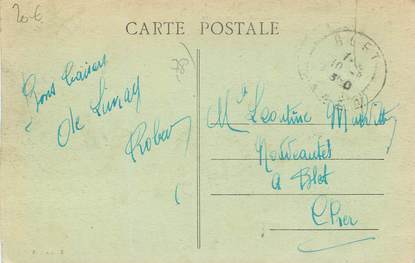 20€
CARTE POSTALE
78)
BLET
Bons baisers
de Lunay
Robert
Mlle Léontine
Nouveautés
à Blet
Cher